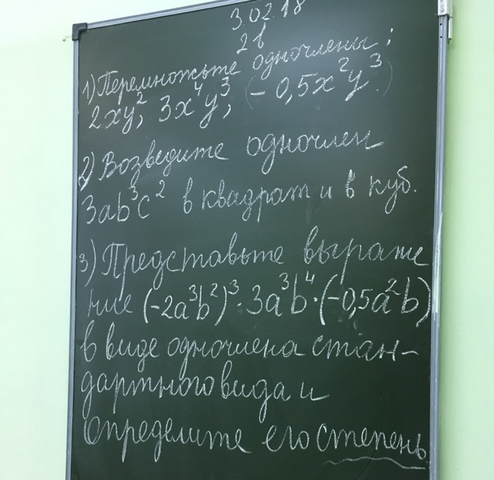 3.02.18
2 в
1) Перемножьте одночлены:
2xy², 3x⁴y³, (-0,5x²y³)
2) Возведите одночлен
3ab³c² в квадрат и в куб.
3) Представьте выраже
ние (-2a³b²)³·3a³b⁴·(-0,5a²b)
в виде одночлена стан-
дартного вида и
определите его степень